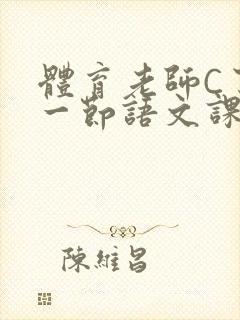 體育老師C
一節語文課
陳維昌